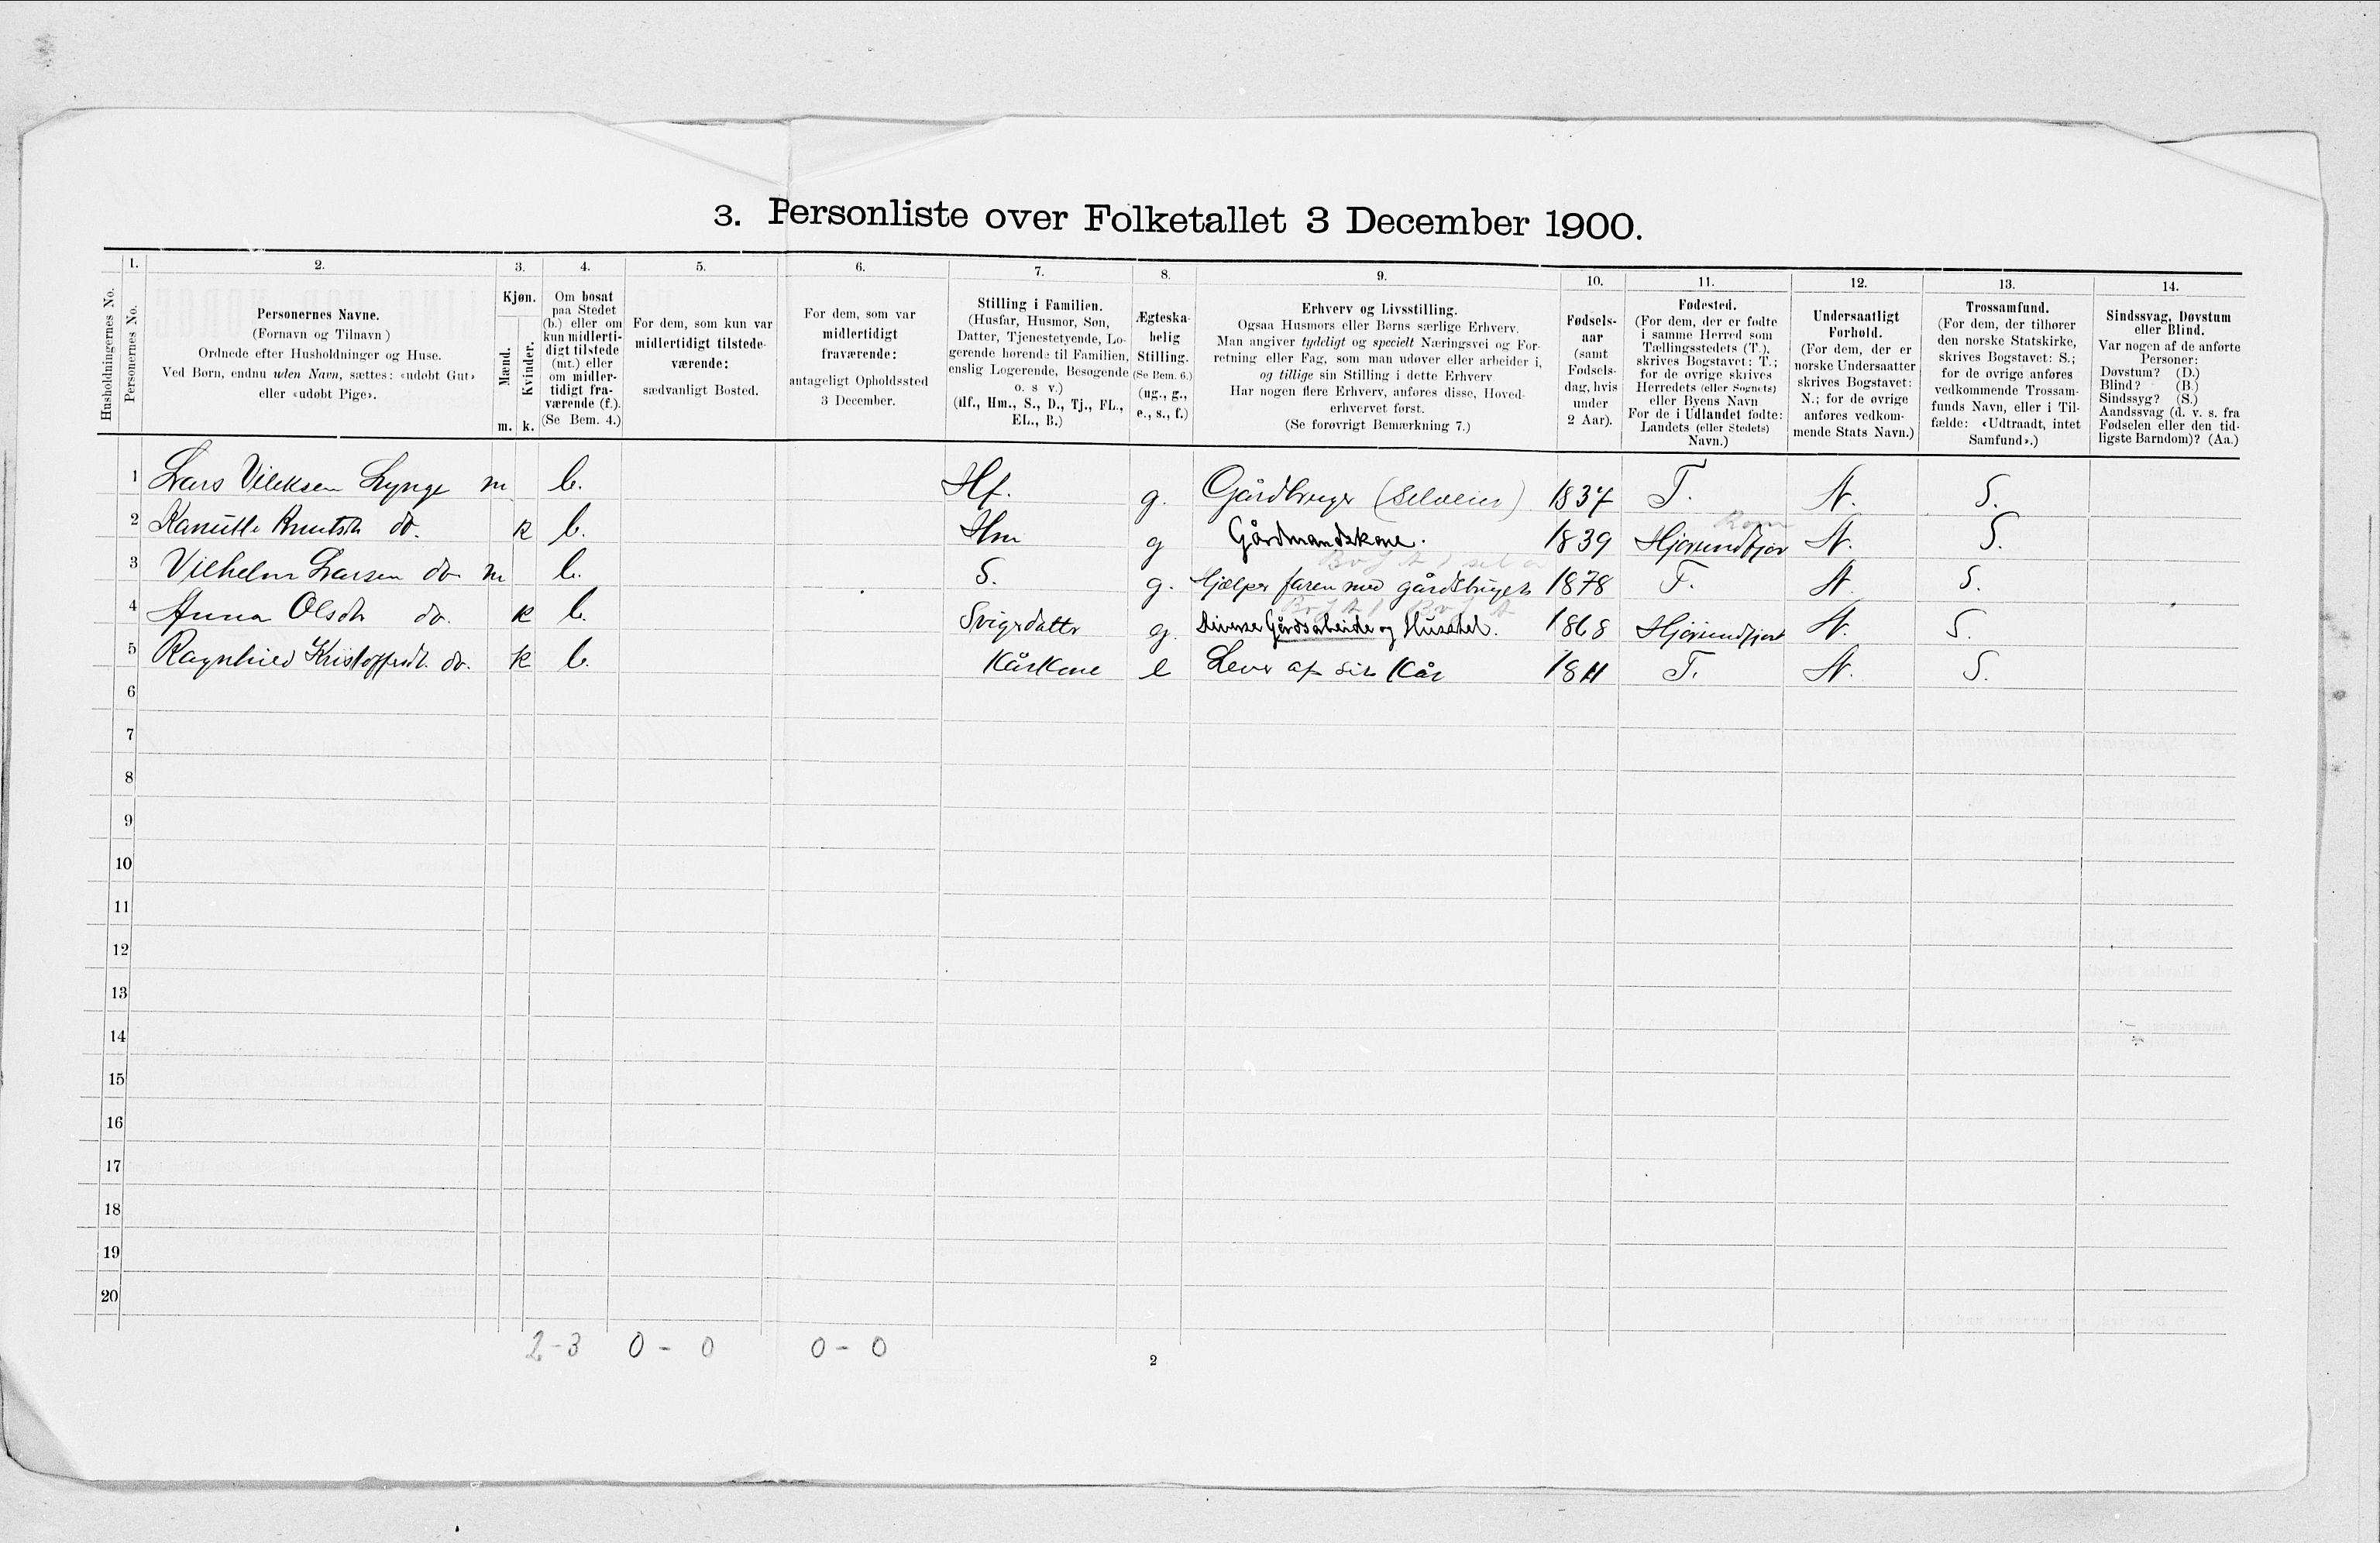 3. Personliste over Folketallet 3 December 1900.
1. 2. 3. 4. 5. 6. 7. 8. 9. 10. 11. 12. 13. 14.
Husholdningernes No.
Personernes No.
Personernes Navne.
(Fornavn og Tilnavn)
Ordnede efter Husholdninger og Huse.
Ved Børn, endnu uden Navn, sættes: «udøbt Gut»
eller «udøbt Pige».
Kjøn.
Mænd.
Kvinder.
m. k.
Om bosat
paa Stedet
(b.) eller om
kun midlerti-
digt tilstede
(mt.) eller
om midler-
tidigt fra-
værende (f.).
(Se Bem. 4.)
For dem, som kun var
midlertidigt tilstede-
værende:
sædvanligt Bosted.
For dem, som var
midlertidigt
fraværende:
antageligt Opholdssted
3 December.
Stilling i Familien.
(Husfar, Husmor, Søn,
Datter, Tjenestetyende, Lo-
gerende hørende til Familien,
enslig Logerende, Besøgende
o. s v.)
(Hf., Hm., S., D., Tj., FL.,
EL., B.)
Ægteska-
belig
Stilling.
(Se Bem. 6.)
(ug., g.,
e., s., f.)
Erhverv og Livsstilling.
Ogsaa Husmors eller Børns særlige Erhverv.
Man angiver tydeligt og specielt Næringsvei og For-
retning eller Fag, som man udøver eller arbeider i,
og tillige sin Stilling i dette Erhverv
Har nogen flere Erhverv, anføres disse, Hoved-
erhvervet først.
(Se forøvrigt Bemærkning 7.)
Fødsels-
aar
(samt
Fødsels-
dag, hvis
under
2 Aar).
Fødested.
(For dem, der er fødte
i samme Herred som
Tællingsstedets (T.),
skrives Bogstavet: T.;
for de øvrige skrives
Herredets (eller Sognets)
eller Byens Navn
For de i Udlandet fødte:
Landets (eller Stedets)
Navn.)
Undersaatligt
Forhold.
(For dem, der er
norske Undersaatter
skrives Bogstavet:
N.; for de øvrige
anføres vedkom-
mende Stats Navn.)
Trossamfund.
(For dem, der tilhører
den norske Statskirke,
skrives Bogstavet: S.;
for de øvrige anføres
vedkommende Trossam-
funds Navn, eller i Til-
fælde: «Udtraadt, intet
Samfund».)
Sindssvag, Døvstum
eller Blind.
Var nogen af de anførte
Personer:
Døvstum? (D.)
Blind? (B.)
Sindssyg? (S.)
Aandssvag (d. v. s. fra
Fødselen eller den tid-
ligste Barndom)? (Aa.)
1 Lars Vileksen Lynge m b. Hf. g. Gårdbruger (Selveier) 1837 T. N. S.
2 Knutsdt. do. k b. Hm g Gårdmandskone. 1839 Hjørundfjor N. S.
3 Vilhelm Larsen do m b. S. g. Hjælper faren med gårdsbruget 1878 T. N. S.
4 Anna Olsdtr do. k b. Svigrdattr g. diverse Gårdsarbeide og Husstel. 1868 Hjørundfjord N. S.
5 Ragnhild Kristoffersdt. do. k b. Kårkone e Lever af sit Kår 1811 T. N. S.
6
7
8
9
10
11
12
13
14
15
16
17
18
19
20
2-3 0 - 0 0 - 0
2